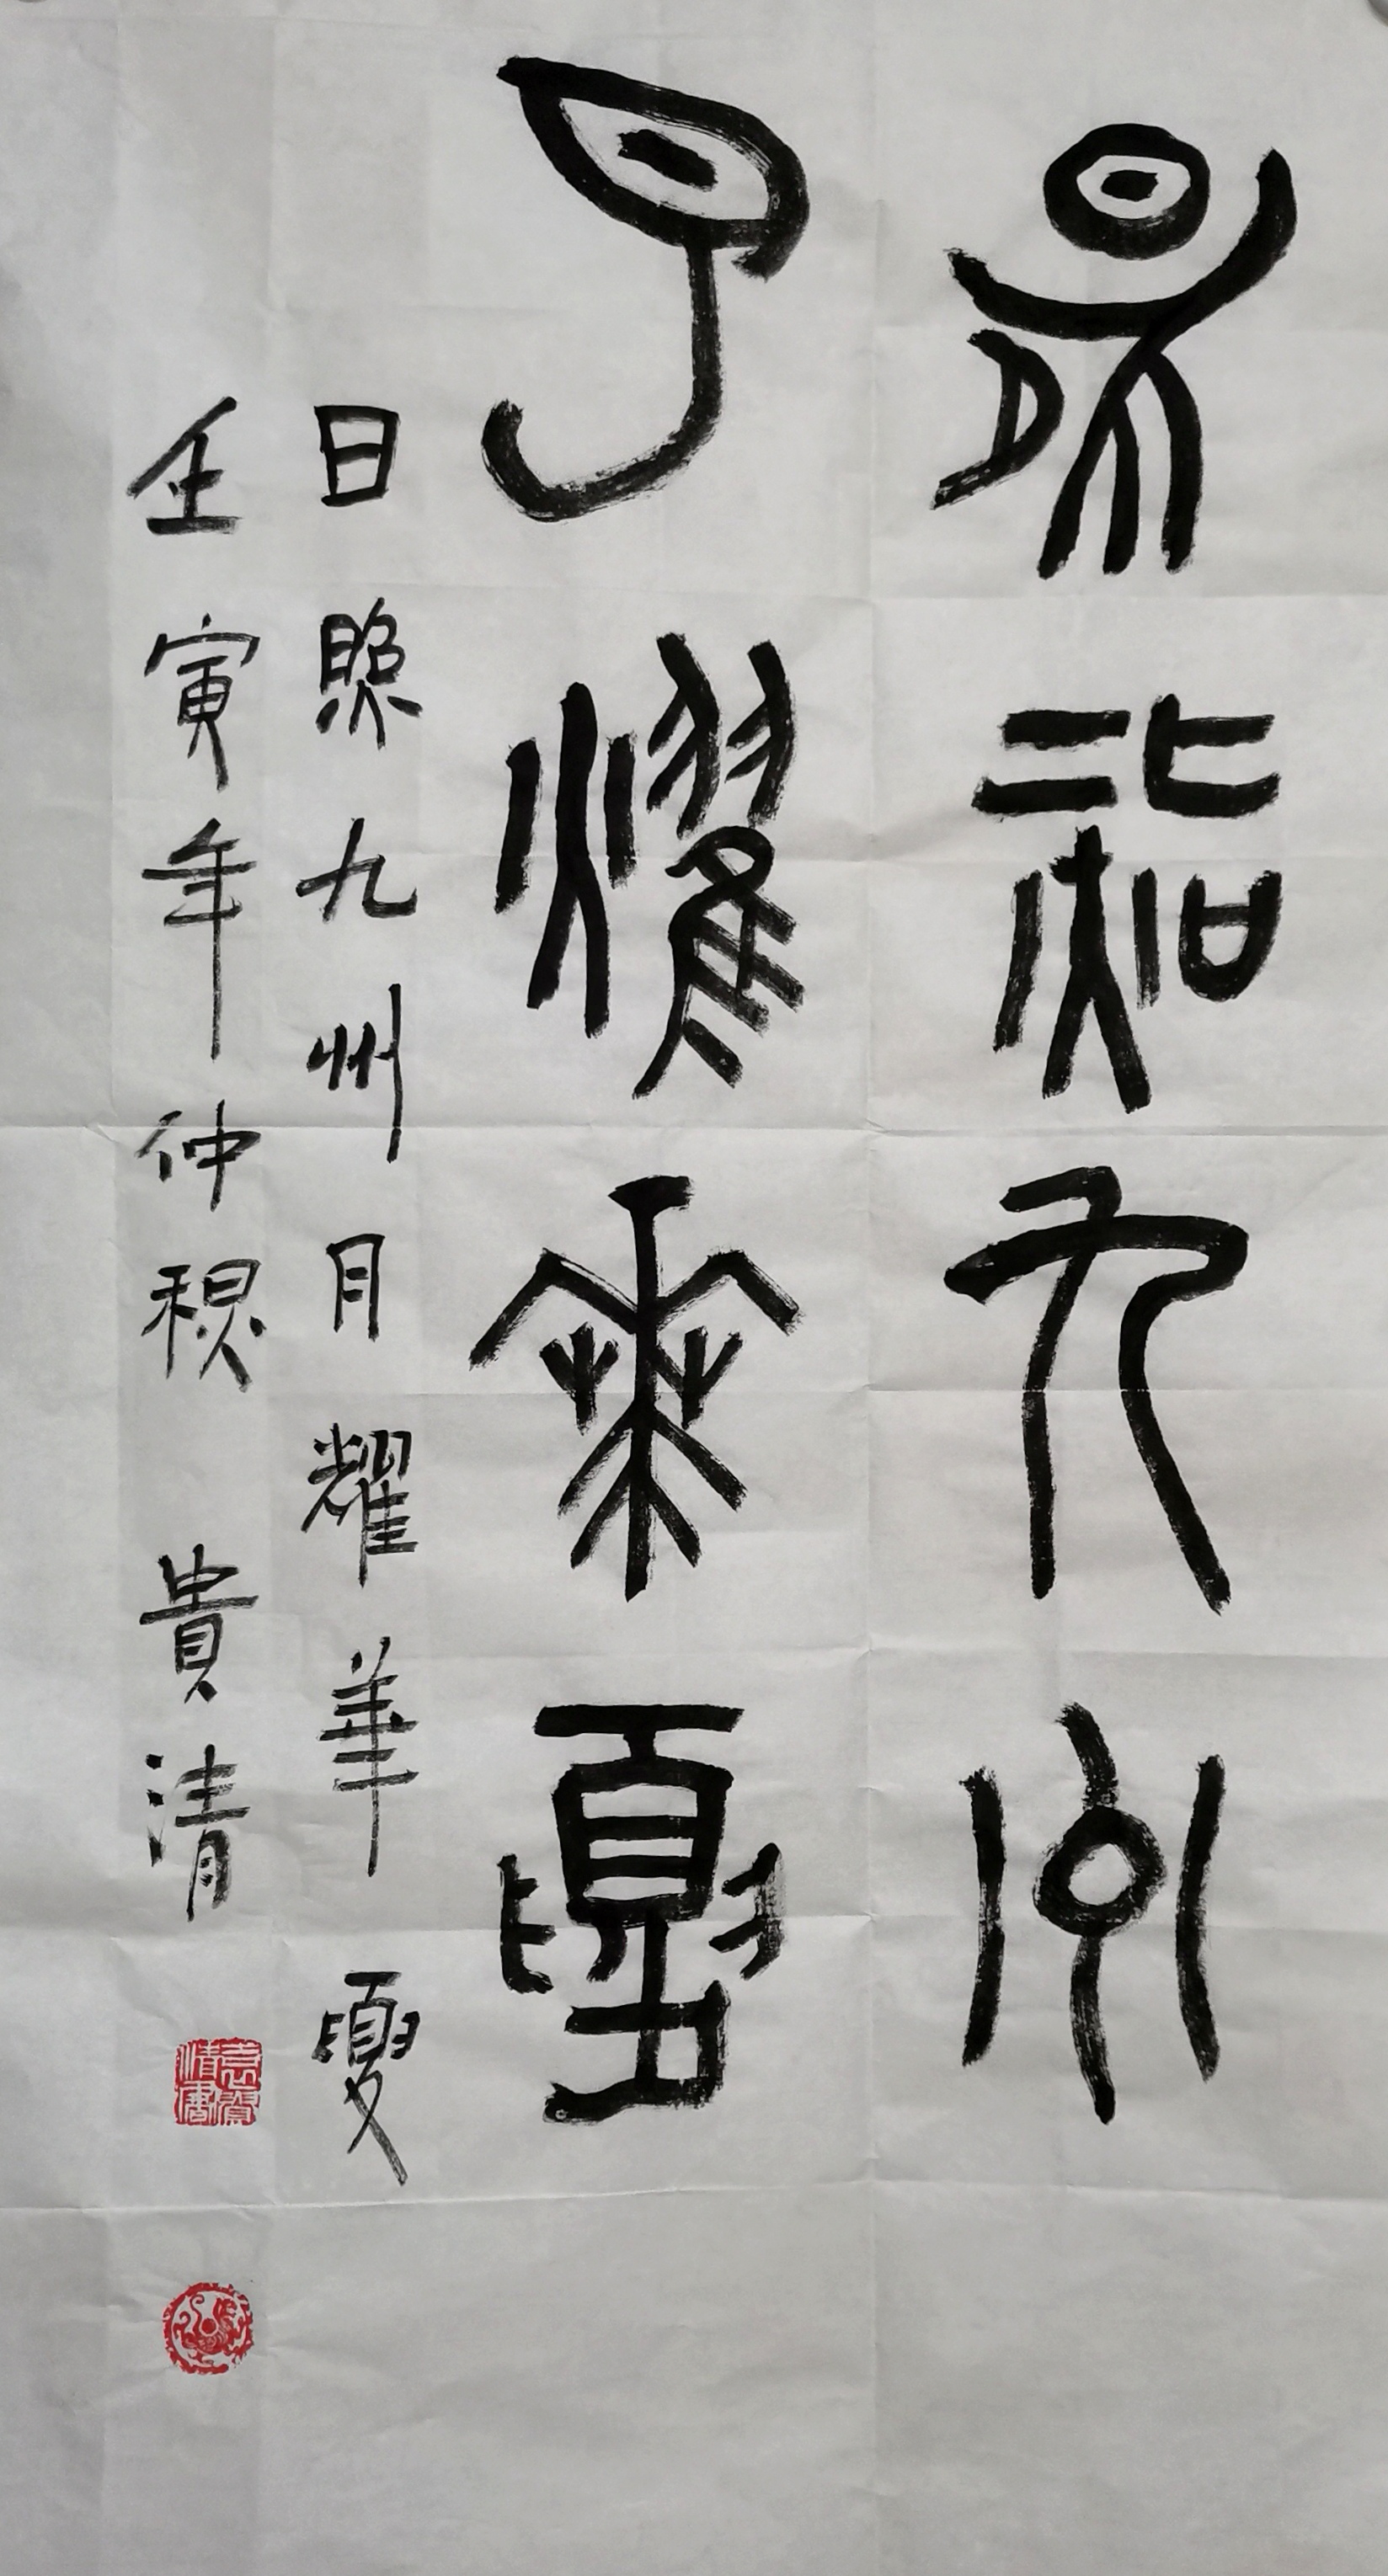 日照九州
月燿華夏
日照九州月耀華夏
壬寅年仲穐 貴清